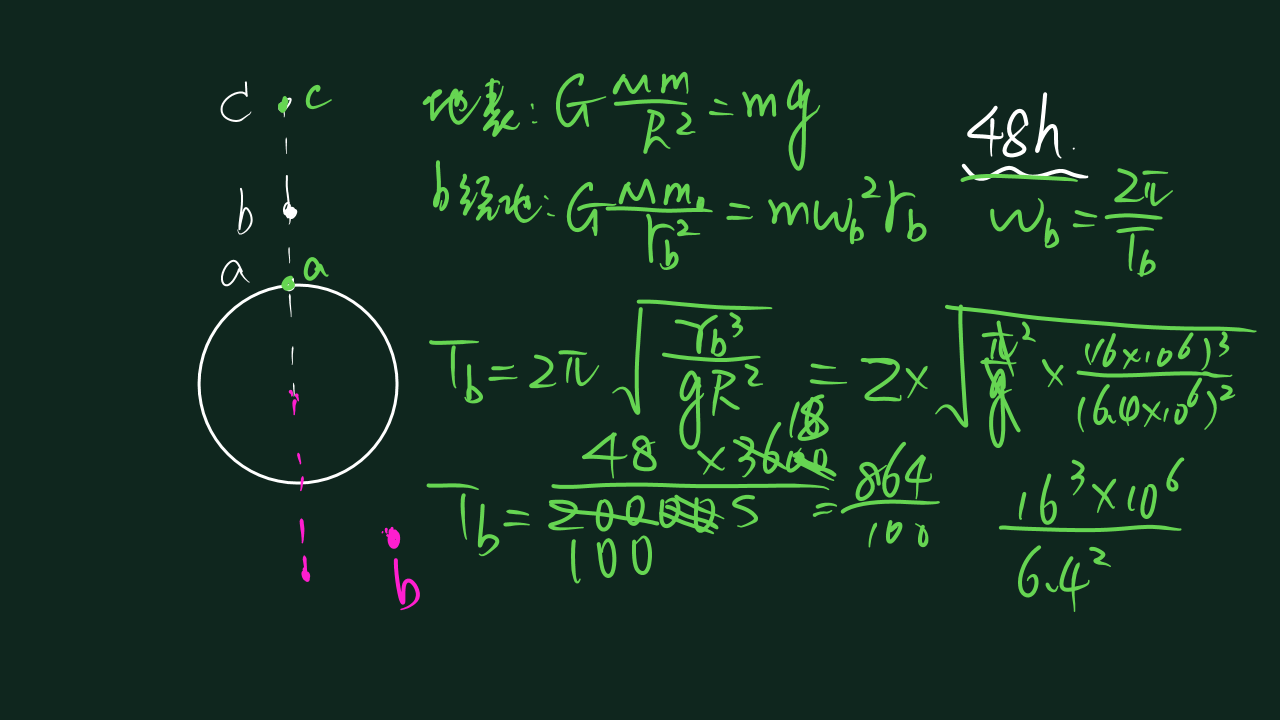 c c
b
a a
地表: G Mm/R² = mg
b绕地: G Mm/r_b² = mω_b² r_b
48h.
ω_b = 2π/T_b
T_b = 2π √(r_b³/gR²) = 2× √(π²/g × (16×10⁶)³/(6.4×10⁶)²)
18
T_b = 48 × 3600/20000 s = 864/100
100
16³×10⁶/6.4²
b